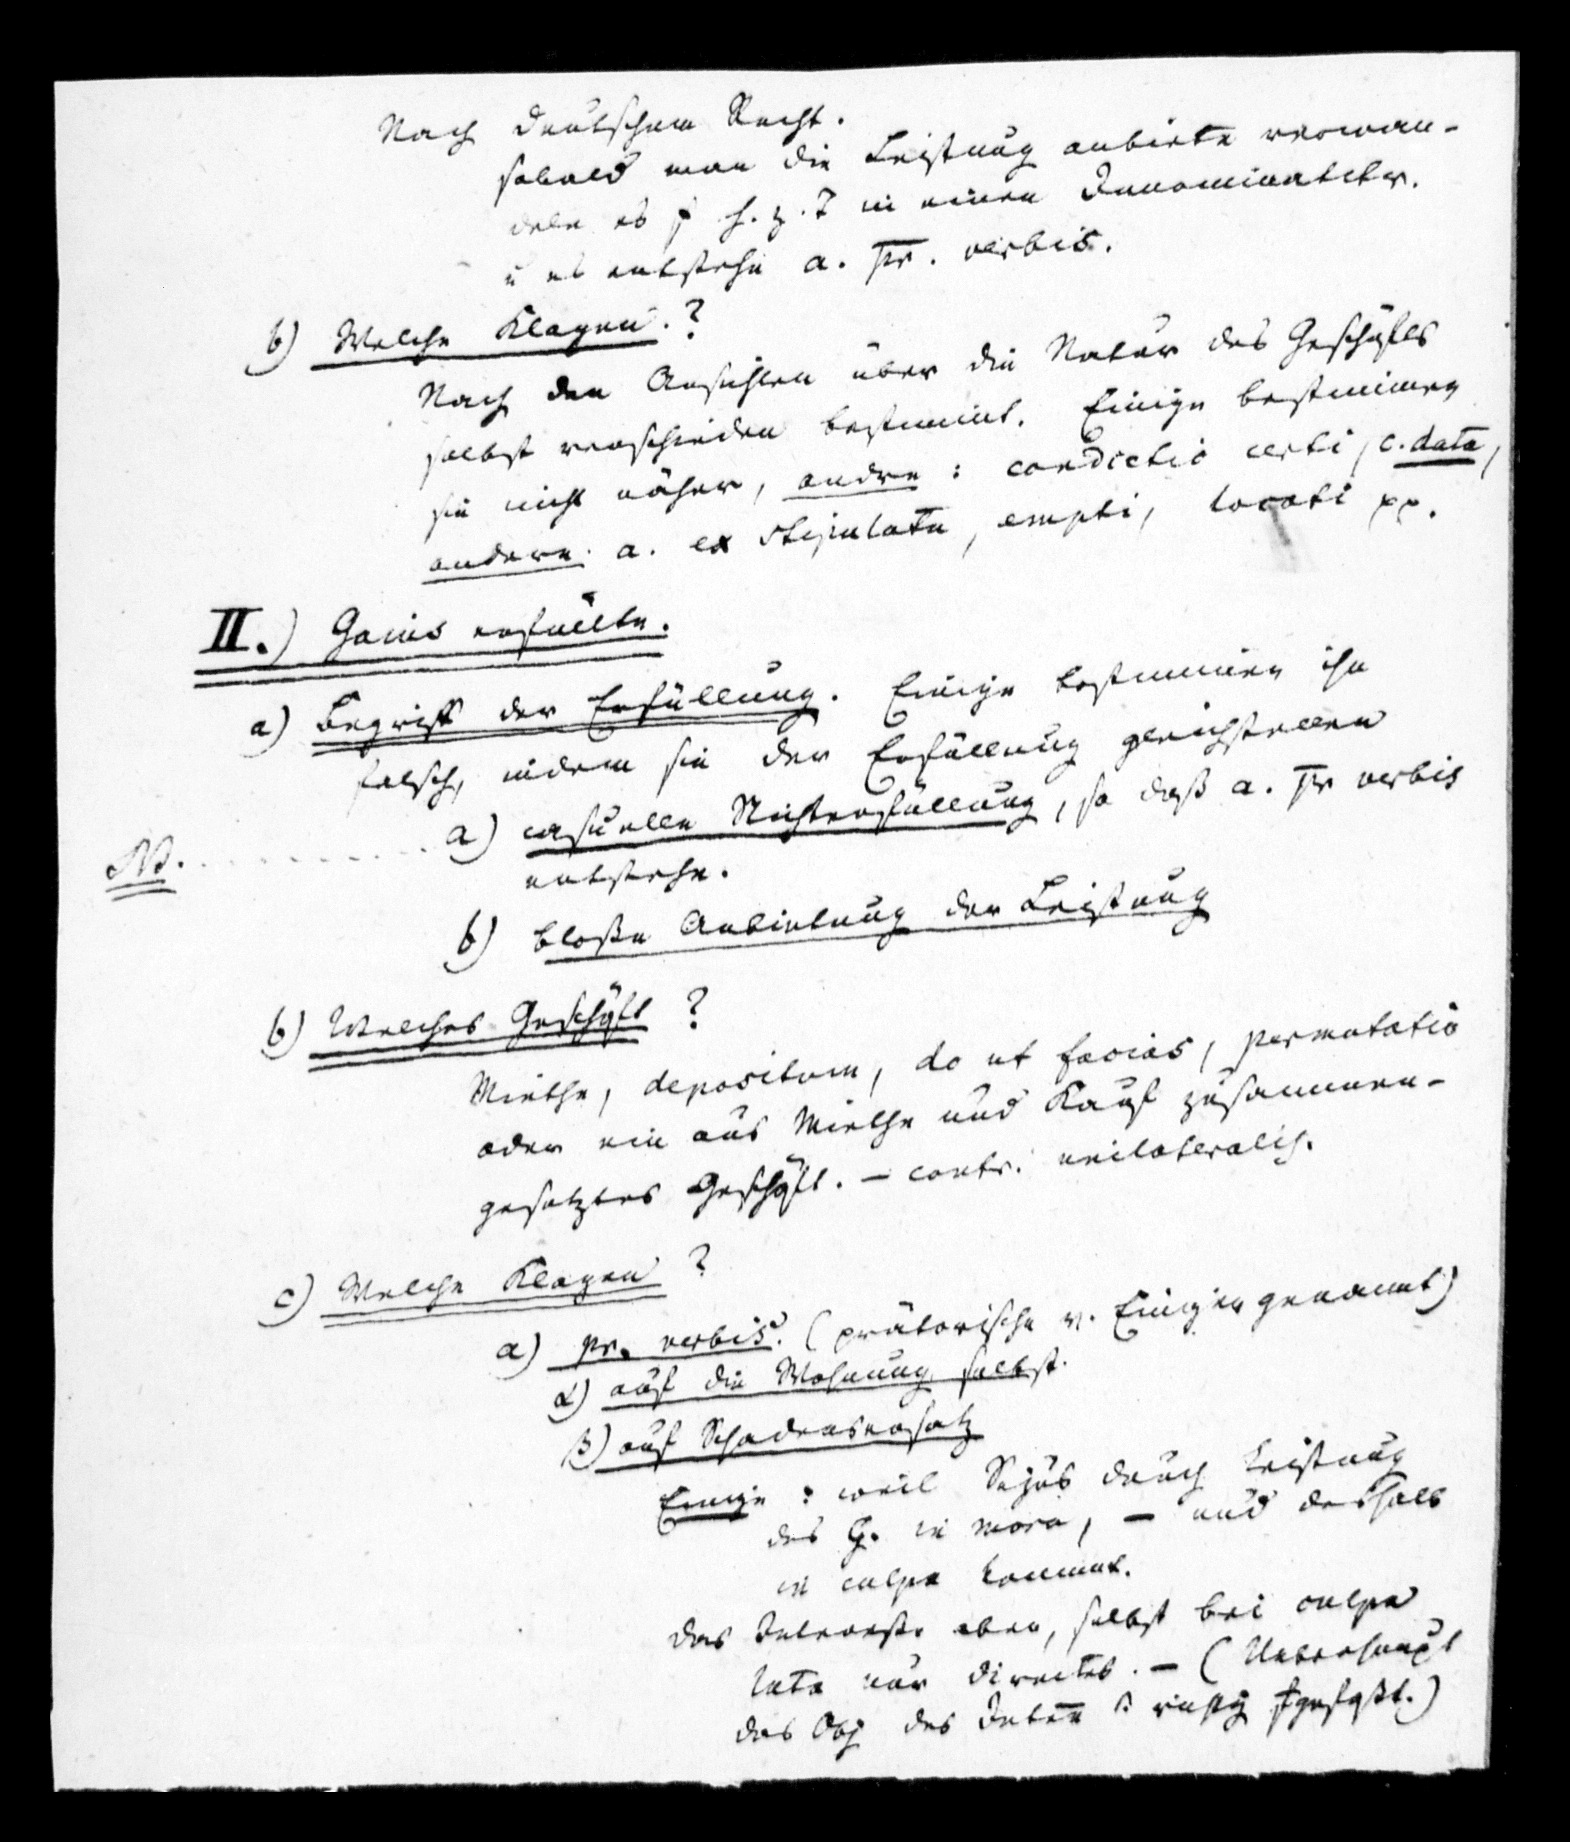 Nach deutschem Recht.
sobald man die Leistung anbiete verwan-
dele es s. h. z. T in einen Innominatctr.
u es entstehe a. pr. verbis.
b) Welche Klagen.?
Nach den Ansichten über die Natur des Geschäfts
selbst verschieden bestimmt. Einige bestimmen
sie nicht näher, andre: condictio certi, c. data,
andere. a. ex stipulatu, empti, locati pp.
II.) Gaius erfüllte.
a) Begriff der Erfüllung. Einige bestimmen ihn
falsch, indem sie der Erfüllung gleichstellen
a) casuelle Nichterfüllung, so daß a. pr verbis
NB.
entstehe.
b) bloße Anbietung der Leistung
b) Welches Geschäft?
Miethe, depositum, do ut facias, permutatio
oder ein aus Miethe und Kauf zusammen-
gesetztes Geschäft. – contr. unilateralis.
c) Welche Klagen?
a) pr. verbis. (prätorische v. Einigen genannt)
α) auf die Wohnung selbst.
β) auf Schadensersatz
Einige: weil Sejus durch Leistung
des G. in mora, – und deshalb
in culpa kommt.
Das Interesse aber, selbst bei culpa
lata nur directes. – (Ueberhaupt
das Obj des